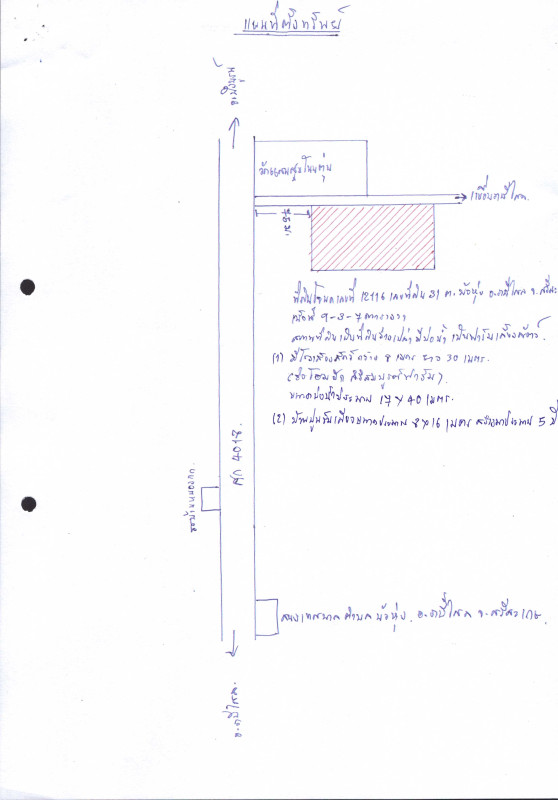 แผนที่ตั้งทรัพย์
อ.บึงบูรพ์
บ้าน
เขื่อนราษีไศล
ที่ดินโฉนดเลขที่ 12116 เลขที่ดิน 31 ต.บัวหุ่ง อ.ราษีไศล จ.ศรีสะ
เนื้อที่ 9-3-7 ตารางวา
สภาพที่ดินเป็นที่ดินว่างเปล่า มีบ่อน้ำ เป็นฟาร์มเลี้ยงสัตว์
(1) มีโรงเลี้ยงสัตว์ กว้าง 8 เมตร ยาว 30 เมตร.
ขนาดบ่อน้ำประมาณ 17 x 40 เมตร.
(2) บ้านปูนชั้นเดียวขนาดประมาณ 8 x 16 เมตร สร้างมาประมาณ 5 ปี
ศก 4013.
สนง เทศบาลตำบลบัวหุ่ง. อ.ราษีไศล จ.ศรีสะเกษ.
อ.ราษีไศล.